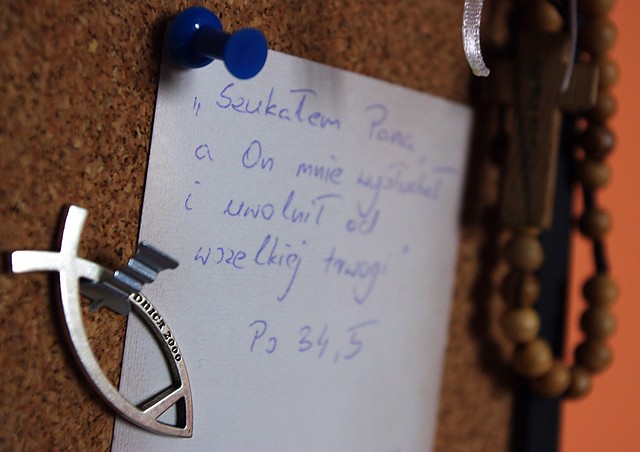 „Szukałem Pana,
a On mnie wysłuchał
i uwolnił od
wszelkiej trwogi"
Ps 34,5
LEDNICA 2000